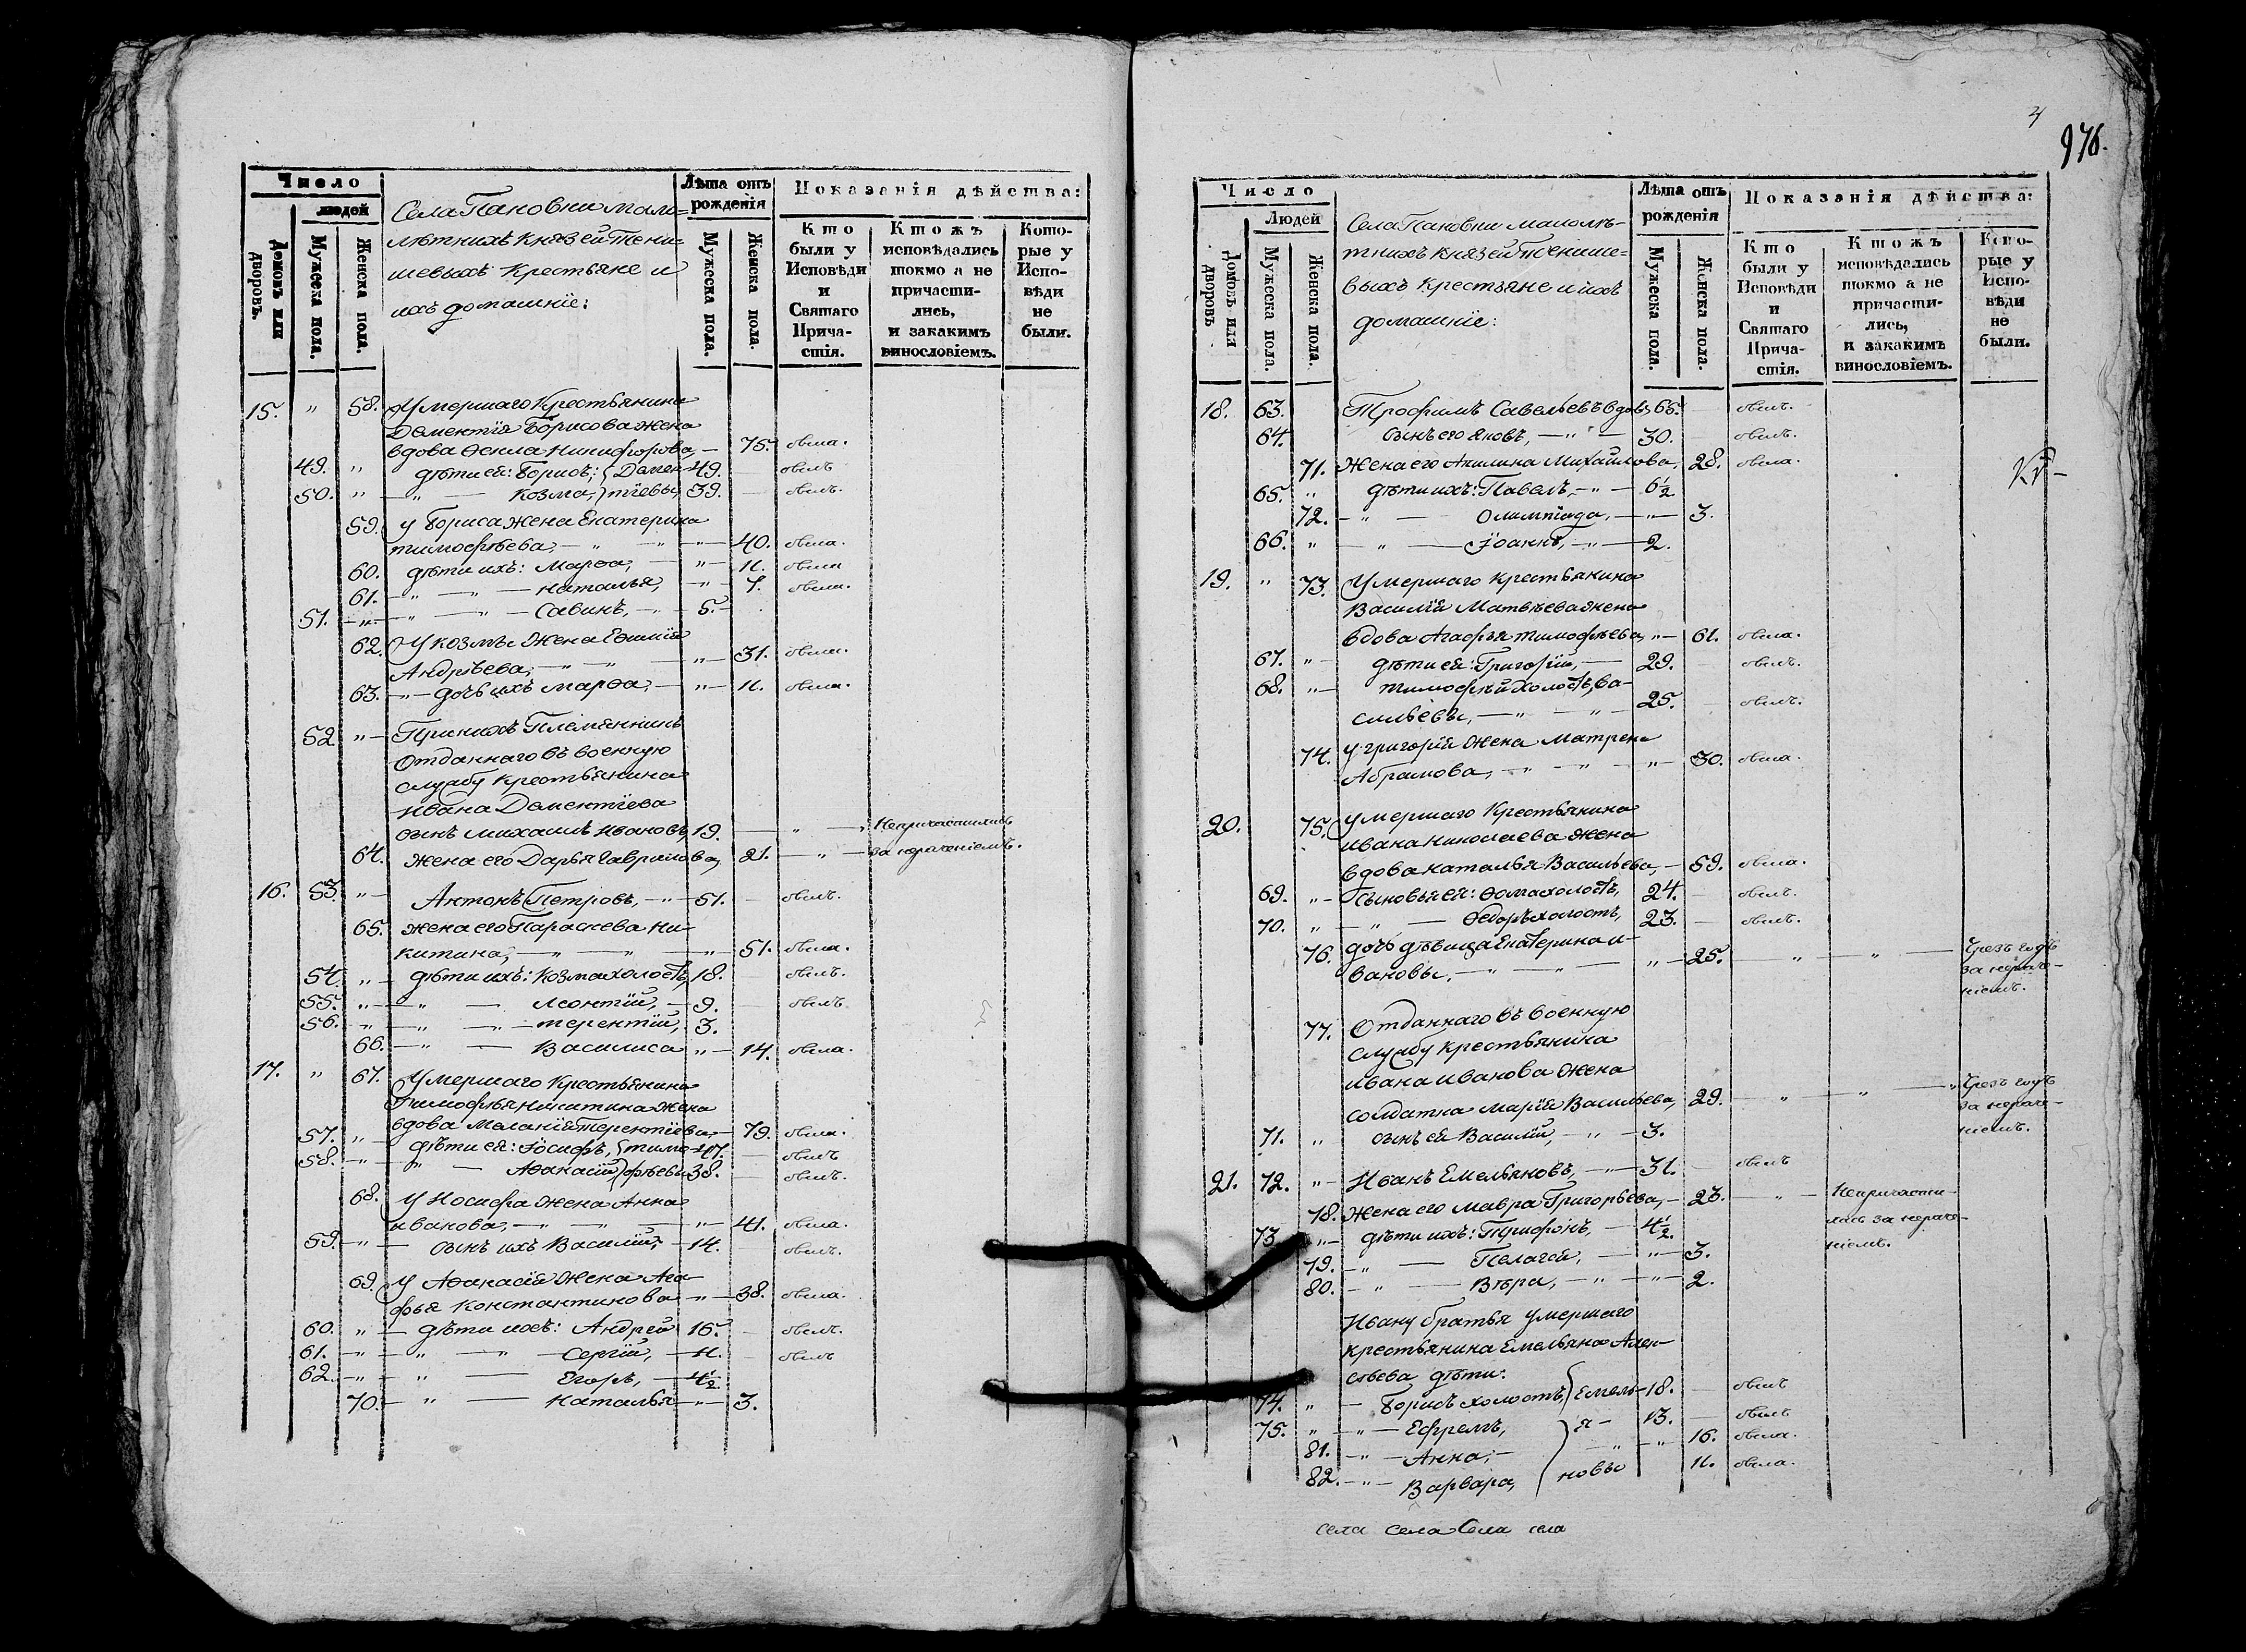 Число
людей
Домовъ или дворовъ.
Мужеска пола.
Женска пола.
Села Пановки мало=
лѣтнихъ Князей Тени=
шевыхъ Крестьяне и
ихъ домашнїе:
Лѣта отъ рожденія
Мужеска пола.
Женска пола.
Показанія дѣйства:
Кто были у Исповѣди и Святаго Прича-стія.
Ктожъ исповѣдались токмо а не причасти-лись, и закакимъ винословіемъ.
Кото-рые у Испо-вѣди не были.
15. " 58. Умершаго Крестьянина
Дементїя Борисова жена
вдова Ѳекла Никифорова, — 75. была.
49. " дѣти ея: Борисъ, Демен- 49. былъ
50. " — " — Козма, тїевы, 39. былъ.
59. У Бориса жена Екатерина
Тимофѣева, — " — " — 40. была.
60. дѣти ихъ: Марѳа, — " — 11. была
61. — " — " — Наталья, — " — 7. была.
51. — " — " — Савинъ, — " — 5.
62. У Козмы жена Евѳимїя
Андрѣева, — " — " — 31. была.
63. — " — дочь ихъ Марѳа, — " — 11. была.
52. " — При нихъ Племянникъ
Отданнаго въ военную
службу Крестьянина
Ивана Дементїева
сынъ Михаилъ Ивановъ, 19. — " — Непричастились
64. жена его Дарья Гаврилова, 21. — " — за нераченїемъ.
16. 53. " — Антонъ Петровъ, — " — 51. былъ.
65. жена его Параскева Ни-
китина, — " — " — 51. была.
54. " — дѣти ихъ: Козма холостъ, 18. былъ.
55. " — " — Леонтїй, — 9. былъ
56. " — " — " — Терентїй, 3.
66. — " — Василиса " — 14. была.
17. " 67. Умершаго Крестьянина
Тимофѣя Никитина жена
вдова Меланїя Терентїева, — 79. была.
57. " — дѣти ея: Іосифъ, Тимо- 47. былъ
58. — " — " — Аѳанасїй фѣевы 38. былъ.
68. У Иосифа жена Анна
Иванова, — " — " — 41. была.
59. — " — сынъ ихъ Василїй, — 14. былъ.
69. У Аѳанасїя жена Ага-
фья Константинова " — 38. была.
60. " — дѣти ихъ: Андрей 15. былъ.
61. — " — " — " — Сергїй, — 11. былъ
62. — " — " — Егоръ, — 4½.
70. — " — Наталья — " — 3.
4
976.
Число
Людей
Домовъ или дворовъ
Мужеска пола.
Женска пола.
Села Пановки малолѣ-
тнихъ Князей Тенише=
выхъ Крестьяне и ихъ
домашнїе:
Лѣта отъ рожденія
Мужеска пола.
Женска пола.
Показанія дѣйства:
Кто были у Исповѣди и Святаго Прича-стія.
Ктожъ исповѣдались токмо а не причасти-лись, и закакимъ винословіемъ.
Кото-рые у Испо-вѣди не были.
18. 63. Трофимъ Савельевъ вдовъ 66. былъ.
64. сынъ его Яковъ, — " — 30. былъ.
71. Жена его Акилина Михайлова, 28. была.
65. " дѣти ихъ: Павелъ, — " — 6½
72. — " — Олимпїада, — " — 3.
66. " — " — Їоаннъ, — " — 2.
19. " 73. Умершаго Крестьянина
Василїя Матвѣева жена
вдова Агафья Тимофѣева, " — 61. была.
67. " — дѣти ея: Григорїй, — 29. былъ.
68. " — Тимофѣй холостъ, Ва-
сильевы, — " — " — 25. былъ.
74. У Григорїя жена Матрена
Абрамова, — " — " — 30. была.
20. 75. Умершаго Крестьянина
Ивана Николаева жена
вдова Наталья Васильева, — 59. была.
69. " — Сыновья ея: Ѳома холостъ, 24. былъ.
70. " — " — Ѳедоръ холостъ, 23. былъ.
76. дочь дѣвица Екатерина И-
вановы, — " — " — 25. — " — " — Чрезъ годъ
за нераче-
нїемъ.
77. Отданнаго въ военную
службу Крестьянина
Ивана Иванова жена
солдатка Марїя Васильева, 29. — " — " — Чрезъ годъ
за нераче-
нїемъ.
71. " сынъ ея Василїй, — " — 3.
21. 72. " — Иванъ Емельяновъ, — " — 31. былъ
78. Жена его Мавра Григорьева, — 23. — " — Непричасти-
лась за нераче-
нїемъ.
73. " — дѣти ихъ: Трифонъ, — 4½.
79. — " — Пелагея, — " — 3.
80. — " — Вѣра, — " — " — 2.
Ивану братья умершаго
крестьянина Емельяна Алек-
сѣева дѣти:
74. " — Борисъ холостъ, Емель- 18. былъ
75. " — " — Ефремъ, я- 13. былъ
81. — " — Анна, — " — 16. была.
82. — " — Варвара, новы 11. была.
села села Села села